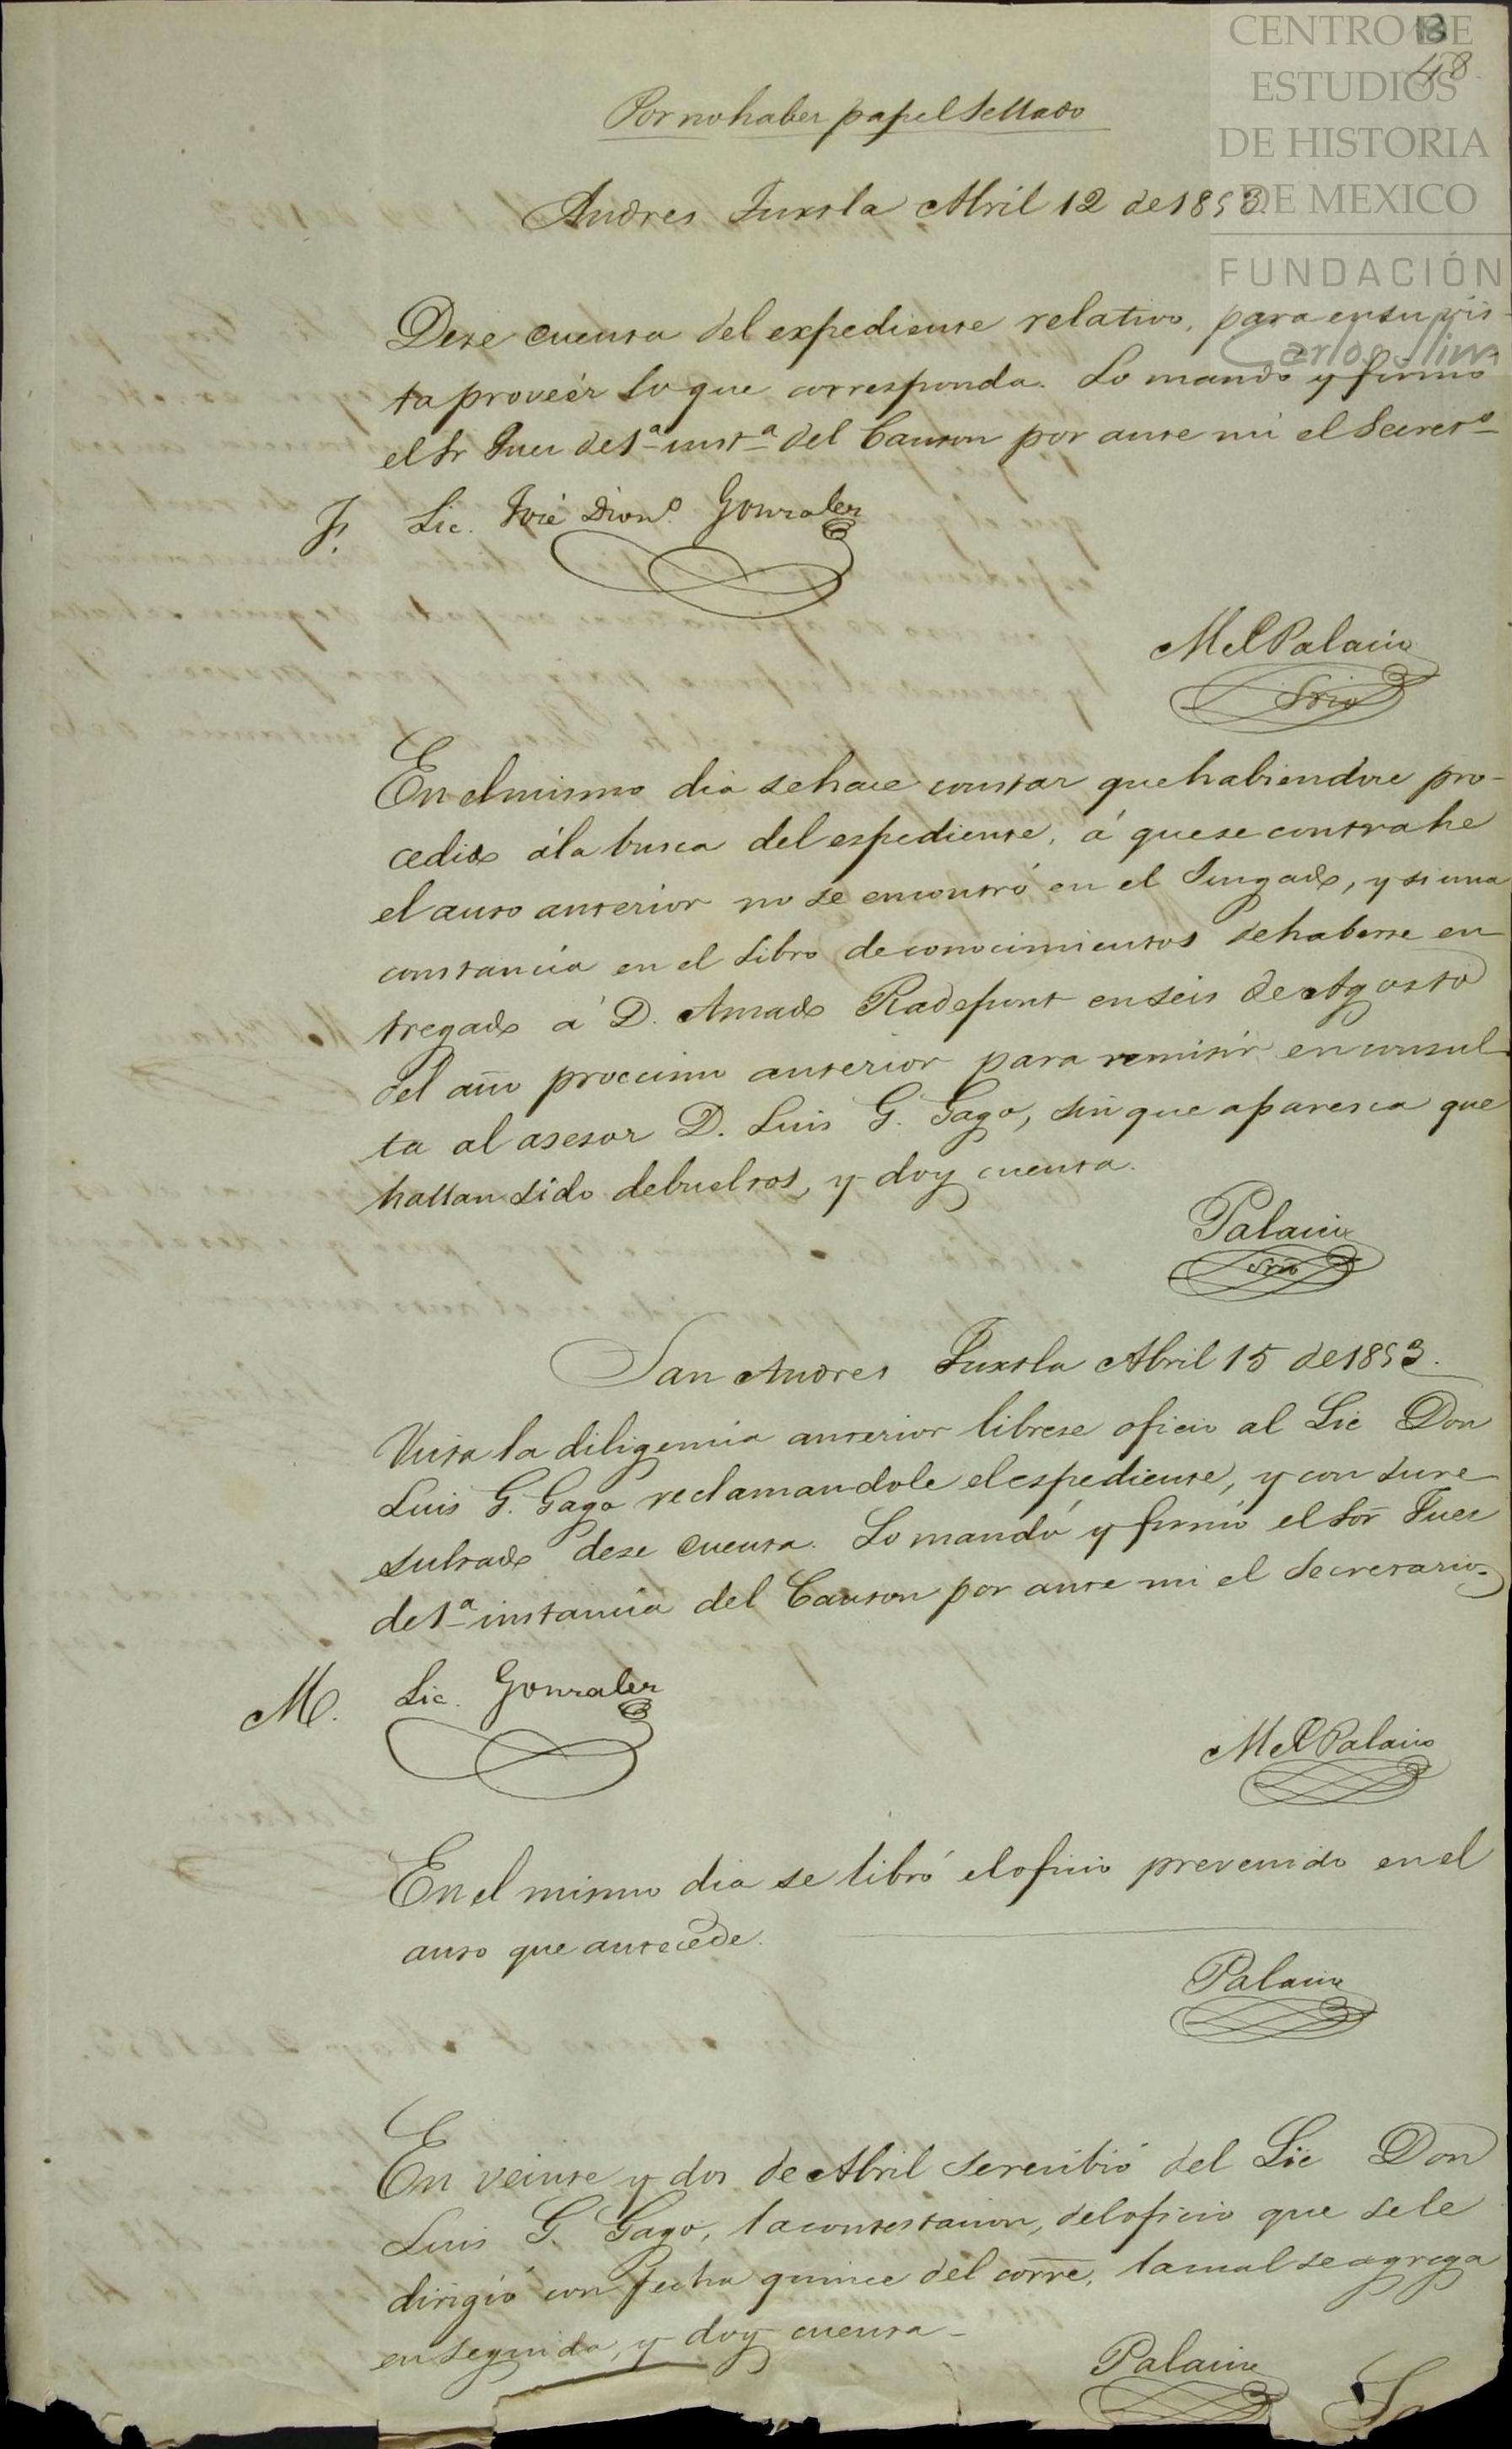 CENTRO DE
ESTUDIOS
DE HISTORIA
DE MEXICO
FUNDACIÓN
Carlos Slim
13
48
Por no haber papel Sellado
Andres Tuxtla Abril 12 de 1853
Dese cuenta del expediente relativo, para en su vis-
ta proveér lo que corresponda. Lo mandó y firmó
el Sr Juez de 1ª instª del Canton por ante mi el Secretº
J. Lic. José Dionº Gonzalez
M. Palacio
Srio
En el mismo dia se hace constar que habiendose pro-
cedido á la busca del espediente, á que se contrahe
el auto anterior no se encontró en el Juzgado, y si una
constancia en el Libro de conocimientos de haberse en
tregado á D. Amado Radepont en seis de Agosto
del año proccimo anterior para remitir en consul-
ta al asesor D. Luis G. Gago, sin que aparesca que
hallan sido debueltos, y doy cuenta.
Palacio
Srio
San Andres Tuxtla Abril 15 de 1853.
Vista la diligencia anterior librese oficio al Lic Don
Luis G. Gago reclamandole el espediente, y con su re-
sultado dese cuenta. Lo mandó y firmó el Sor Juez
de 1ª instancia del Canton por ante mi el Secretario
M. Lic. Gonzalez
M. Palacio
En el mismo dia se libró el oficio prevenido en el
auto que antecede.
Palacio
En veinte y dos de Abril se recibió del Lic Don
Luis G. Gago, la contestacion, del oficio que se le
dirigió con fecha quince del corre, la cual se agrega
en seguida, y doy cuenta
Palacio